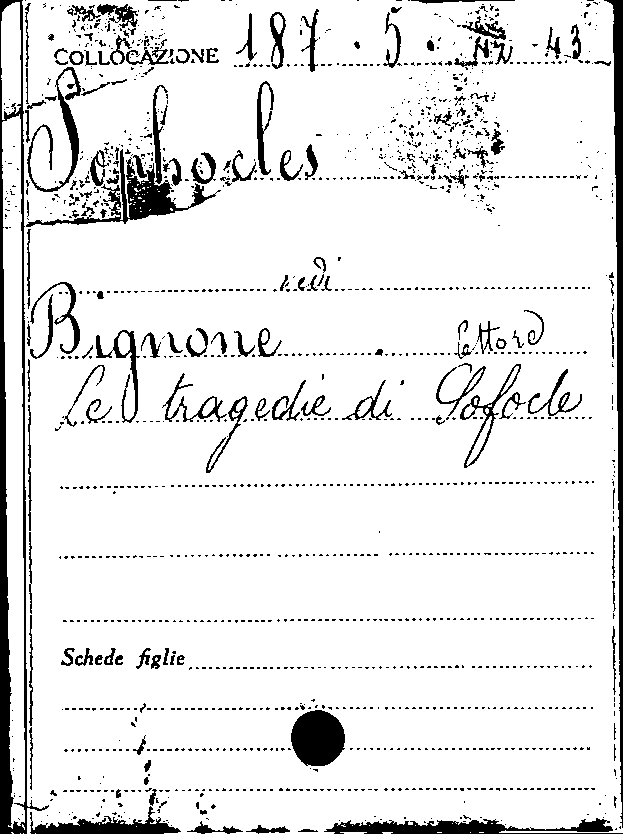 COLLOCAZIONE 187.5. 43
Sophocles
vedi
Bignone. Ettore
Le tragedie di Sofocle
Schede figlie